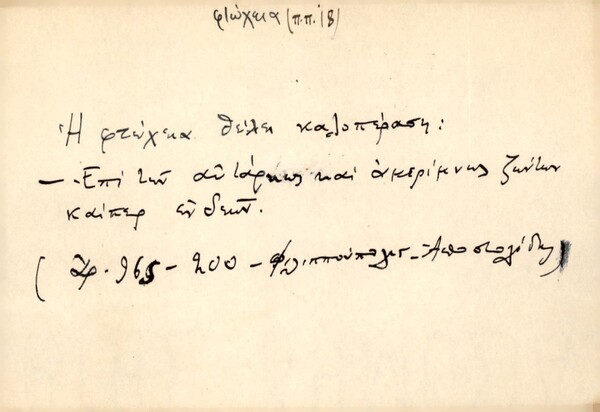 φτώχεια (π.π. 18)
Ἡ φτώχεια θέλει καλοπέραση:
— Ἐπὶ τῶν αὐτάρκως καὶ ἀμερίμνως ζώντων
καίπερ ἐνδεῶν.
(Ἀρ. 965 - 200 - Φιλιππούπολις - Ἀποστολίδης)